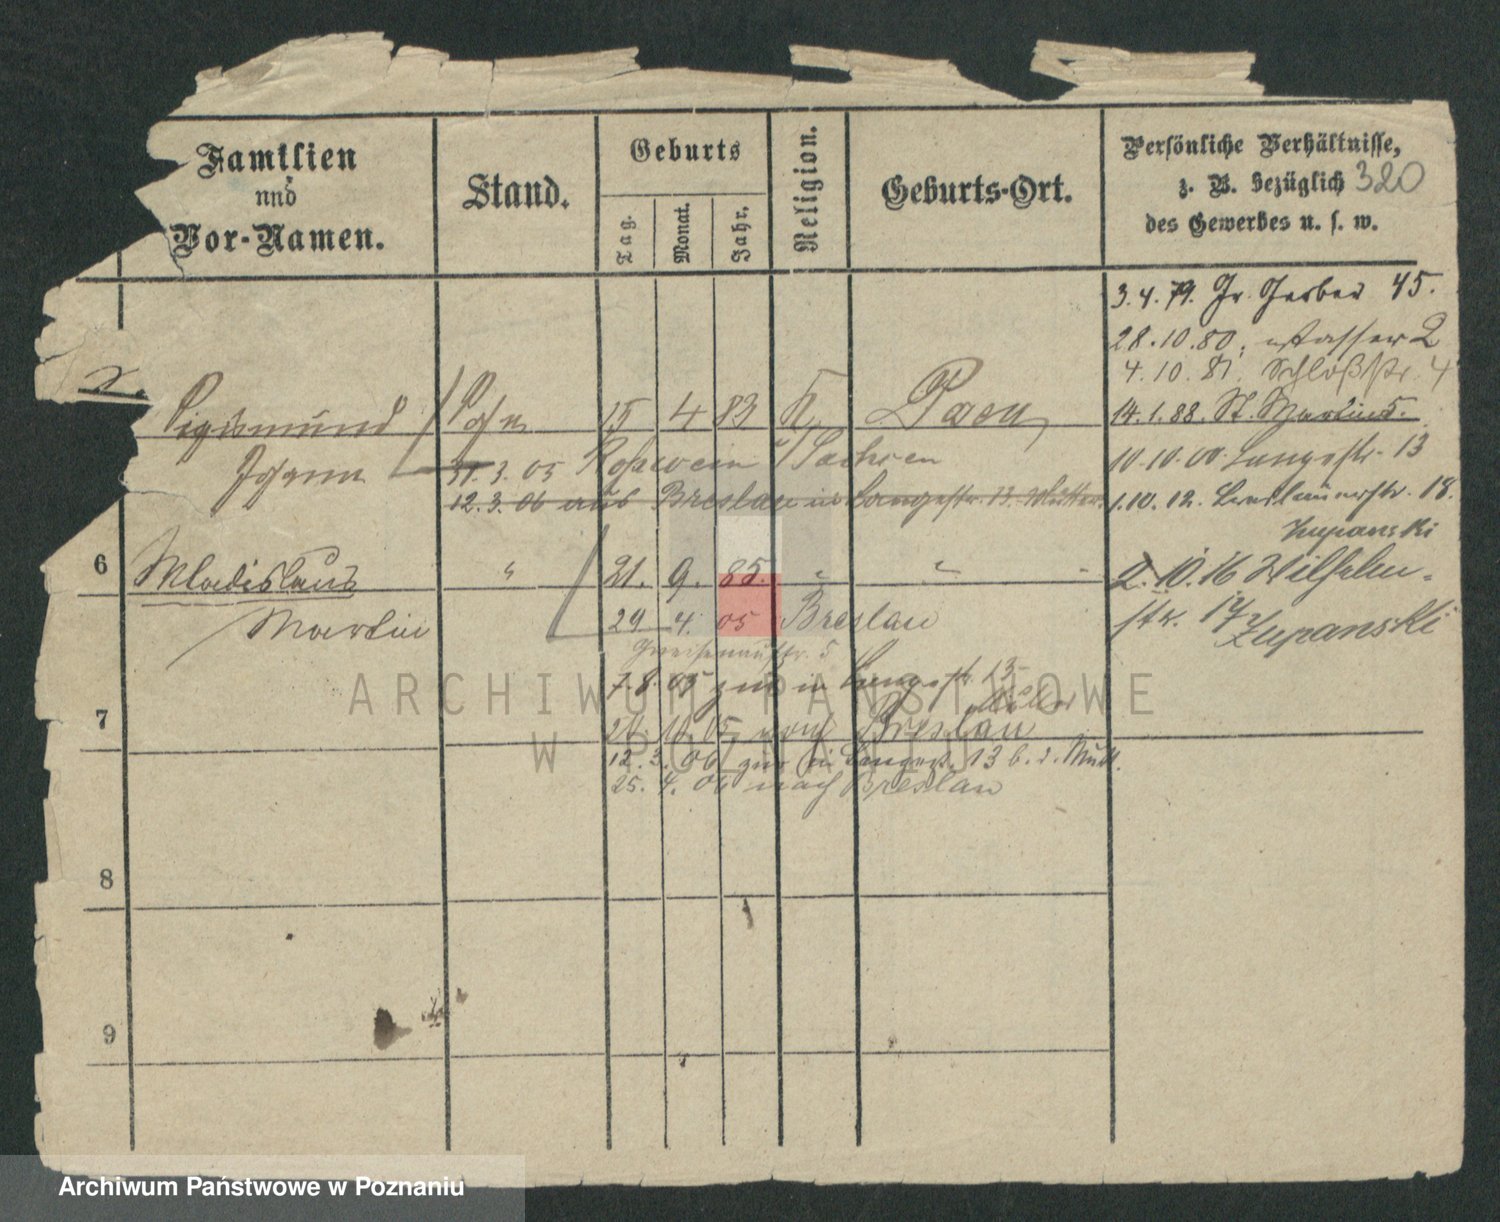 Familien
und
Vor-Namen.
Stand.
Geburts
Tag.
Monat.
Jahr.
Religion.
Geburts-Ort.
Persönliche Verhältnisse,
z. B. bezüglich 320
des Gewerbes u. s. w.
3.4.79. Gr. Gerber 45.
28.10.80. Wasser 2
4.10.81. Schloßstr. 4
14.1.88. St. Martin 5.
10.10.00. Langestr. 13
1.10.12. Breslauerstr. 18.
Zupanski
2.10.16 Wilhelm-
str. 17
Zupanski
Sigismund
Sohn
15 4 83 K. Posen
Johann
31.3.05 Rosswein i/Sachsen
12.3.06 aus Breslau in Langestr. 13. Mutter.
6
Wladislaus
"
21. 9. 85.
Martin
29 4. 05 Breslau
Gneisenaustr. 5
7.8.05 zur in Langestr. 13
7
20.10.05 nach Breslau
12.3.06 zur in Langestr. 13 b. d. Mutt.
25.4.06 nach Breslau
8
9
ARCHIWUM PAŃSTWOWE
W POZNANIU
Archiwum Państwowe w Poznaniu